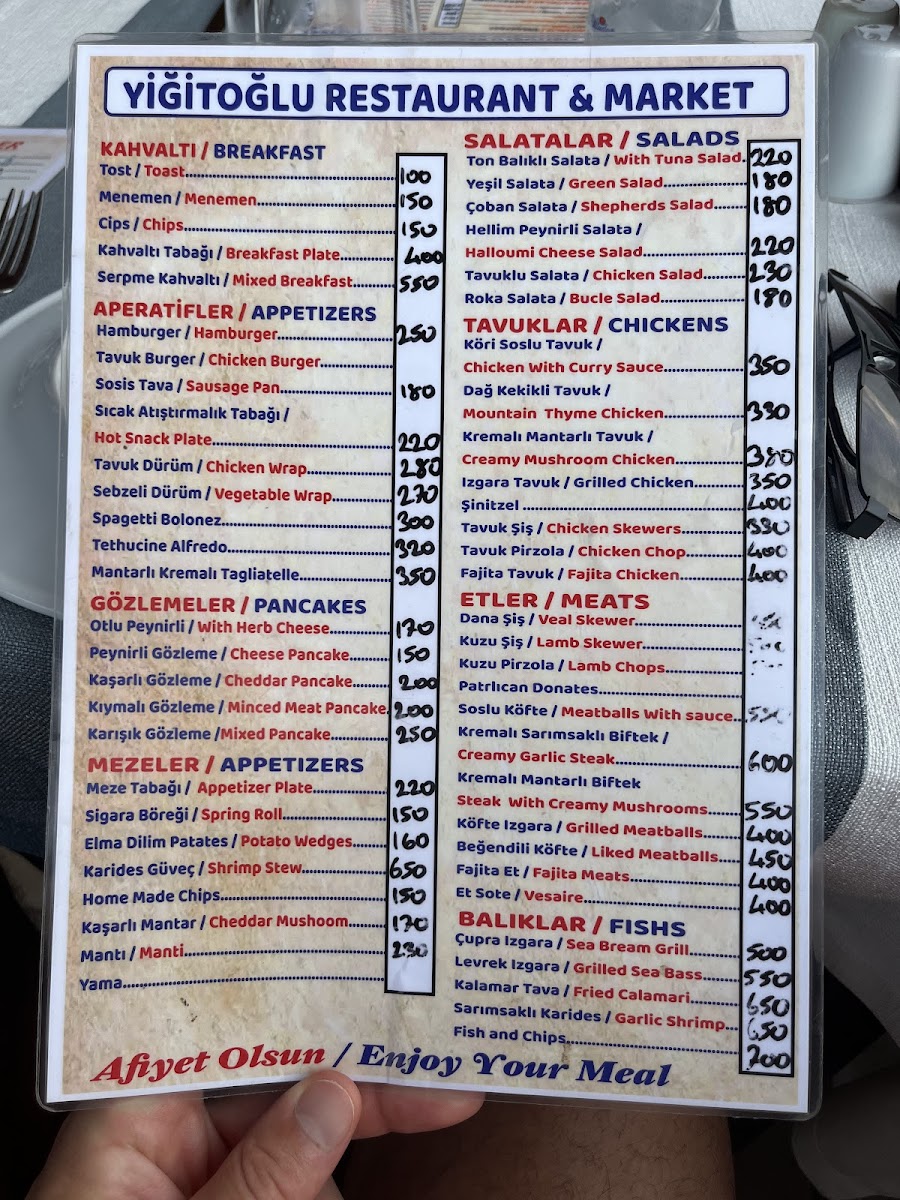 YİĞİTOĞLU RESTAURANT & MARKET
KAHVALTI / BREAKFAST
Tost / Toast 100
Menemen / Menemen 150
Cips / Chips 150
Kahvaltı Tabağı / Breakfast Plate 400
Serpme Kahvaltı / Mixed Breakfast 550
APERATİFLER / APPETIZERS
Hamburger / Hamburger 250
Tavuk Burger / Chicken Burger
Sosis Tava / Sausage Pan 180
Sıcak Atıştırmalık Tabağı /
Hot Snack Plate 220
Tavuk Dürüm / Chicken Wrap 280
Sebzeli Dürüm / Vegetable Wrap 270
Spagetti Bolonez 300
Tethucine Alfredo 320
Mantarlı Kremalı Tagliatelle 350
GÖZLEMELER / PANCAKES
Otlu Peynirli / With Herb Cheese 170
Peynirli Gözleme / Cheese Pancake 150
Kaşarlı Gözleme / Cheddar Pancake 200
Kıymalı Gözleme / Minced Meat Pancake 200
Karışık Gözleme /Mixed Pancake 250
MEZELER / APPETIZERS
Meze Tabağı / Appetizer Plate 220
Sigara Böreği / Spring Roll 150
Elma Dilim Patates / Potato Wedges 160
Karides Güveç / Shrimp Stew 650
Home Made Chips 150
Kaşarlı Mantar / Cheddar Mushoom 170
Mantı / Manti 230
Yama
SALATALAR / SALADS
Ton Balıklı Salata / With Tuna Salad 220
Yeşil Salata / Green Salad 180
Çoban Salata / Shepherds Salad 180
Hellim Peynirli Salata /
Halloumi Cheese Salad 220
Tavuklu Salata / Chicken Salad 230
Roka Salata / Bucle Salad 180
TAVUKLAR / CHICKENS
Köri Soslu Tavuk /
Chicken With Curry Sauce 350
Dağ Kekikli Tavuk /
Mountain Thyme Chicken 330
Kremalı Mantarlı Tavuk /
Creamy Mushroom Chicken 380
Izgara Tavuk / Grilled Chicken 350
Şinitzel 400
Tavuk Şiş / Chicken Skewers 330
Tavuk Pirzola / Chicken Chop 400
Fajita Tavuk / Fajita Chicken 400
ETLER / MEATS
Dana Şiş / Veal Skewer
Kuzu Şiş / Lamb Skewer
Kuzu Pirzola / Lamb Chops
Patrlıcan Donates
Soslu Köfte / Meatballs With sauce
Kremalı Sarımsaklı Biftek /
Creamy Garlic Steak 600
Kremalı Mantarlı Biftek
Steak With Creamy Mushrooms 550
Köfte Izgara / Grilled Meatballs 400
Beğendili Köfte / Liked Meatballs 450
Fajita Et / Fajita Meats 400
Et Sote / Vesaire 400
BALIKLAR / FISHS
Çupra Izgara / Sea Bream Grill 500
Levrek Izgara / Grilled Sea Bass 550
Kalamar Tava / Fried Calamari 650
Sarımsaklı Karides / Garlic Shrimp 650
Fish and Chips 700
Afiyet Olsun / Enjoy Your Meal